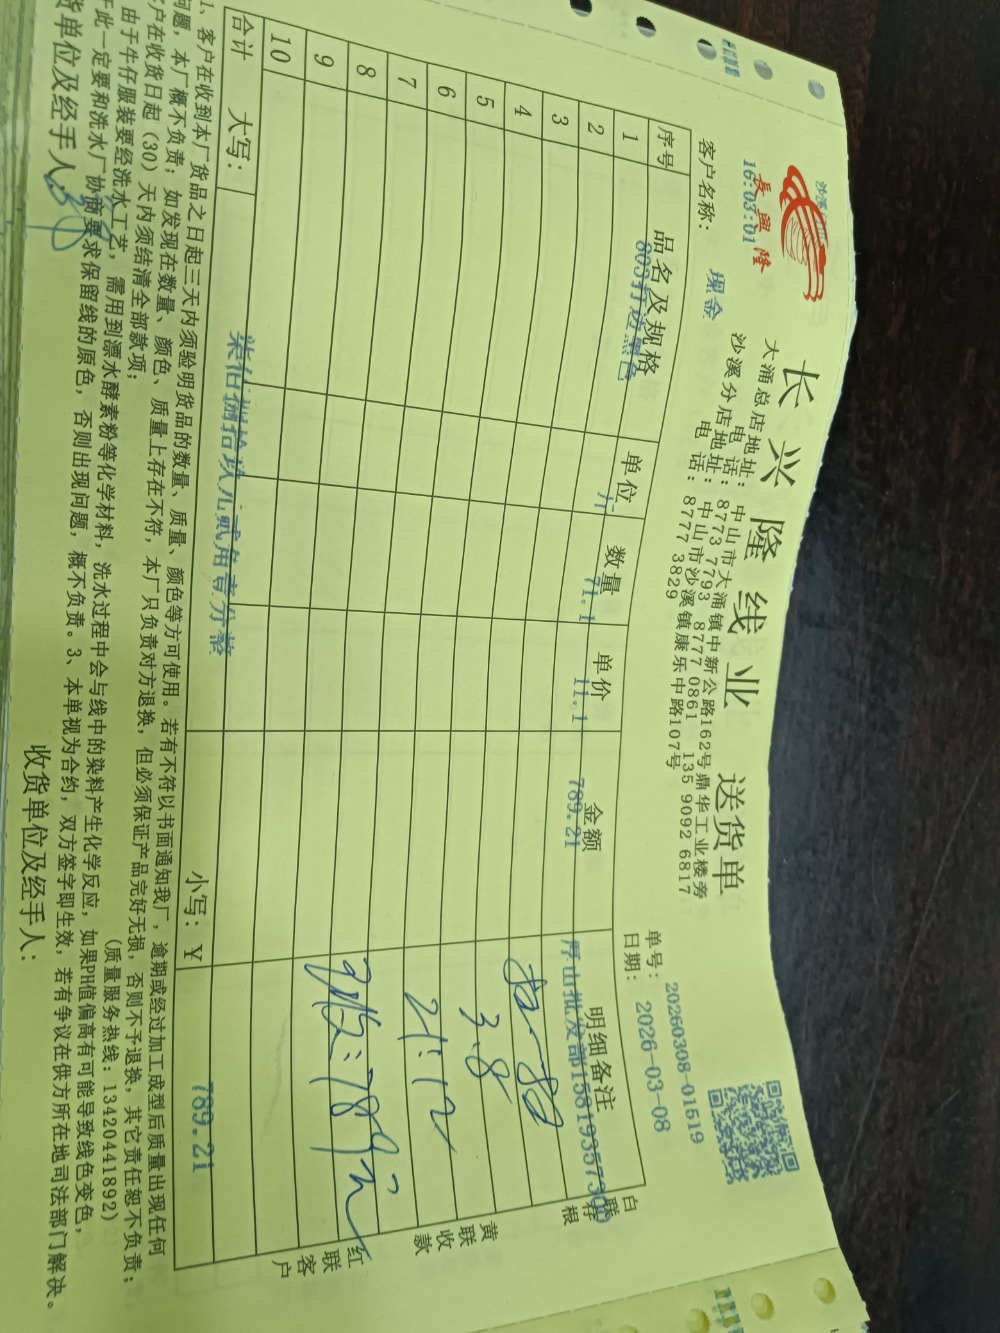 长兴隆线业 送货单
長興隆
16:03:01
大涌总店地址: 中山市大涌镇中新公路162号鼎华工业楼旁
电话: 8773 7793 8777 0861 135 9092 6817
沙溪分店地址: 中山市沙溪镇康乐中路107号
电话: 8777 3829
单号: 20260308-01519
客户名称: 现金
日期: 2026-03-08
序号 品名及规格 单位 数量 单价 金额 明细备注
1 803打边黑色 71.1 11.1 789.21 厚山批发部15819357300
2
3
4
5 3.8
6
7
8
9
10
合计 大写: 柒佰捌拾玖元贰角壹分整 小写: ¥ 789.21
白联存根
黄联收款
红联客户
1、客户在收到本厂货品之日起三天内须验明货品的数量、质量、颜色等方可使用。若有不符以书面通知我厂,逾期或经过加工成型后质量出现任何
问题,本厂概不负责;如发现在数量、颜色、质量上存在不符,本厂只负责对方退换,但必须保证产品完好无损,否则不予退换,其它责任恕不负责;
客户在收货日起(30)天内须结清全部款项; (质量服务热线:13420441892)
由于牛仔服装要经洗水工艺,需用到漂水酵素粉等化学材料,洗水过程中会与线中的染料产生化学反应,如果PH值偏高有可能导致线色变色,
此一定要和洗水厂协商要求保留线的原色,否则出现问题,概不负责。3、本单视为合约,双方签字即生效,若有争议在供方所在地司法部门解决。
货单位及经手人: 收货单位及经手人: